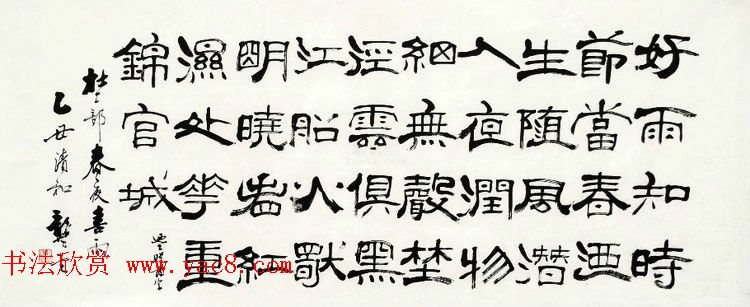 好雨知時
節當春迺
生随風潛
入夜潤物
細無聲埜
徑雲俱黑
江船火獨
明曉看紅
濕处華重
錦官城
杜工部春夜喜雨
乙丑清和
书法欣赏 www.yac8.com